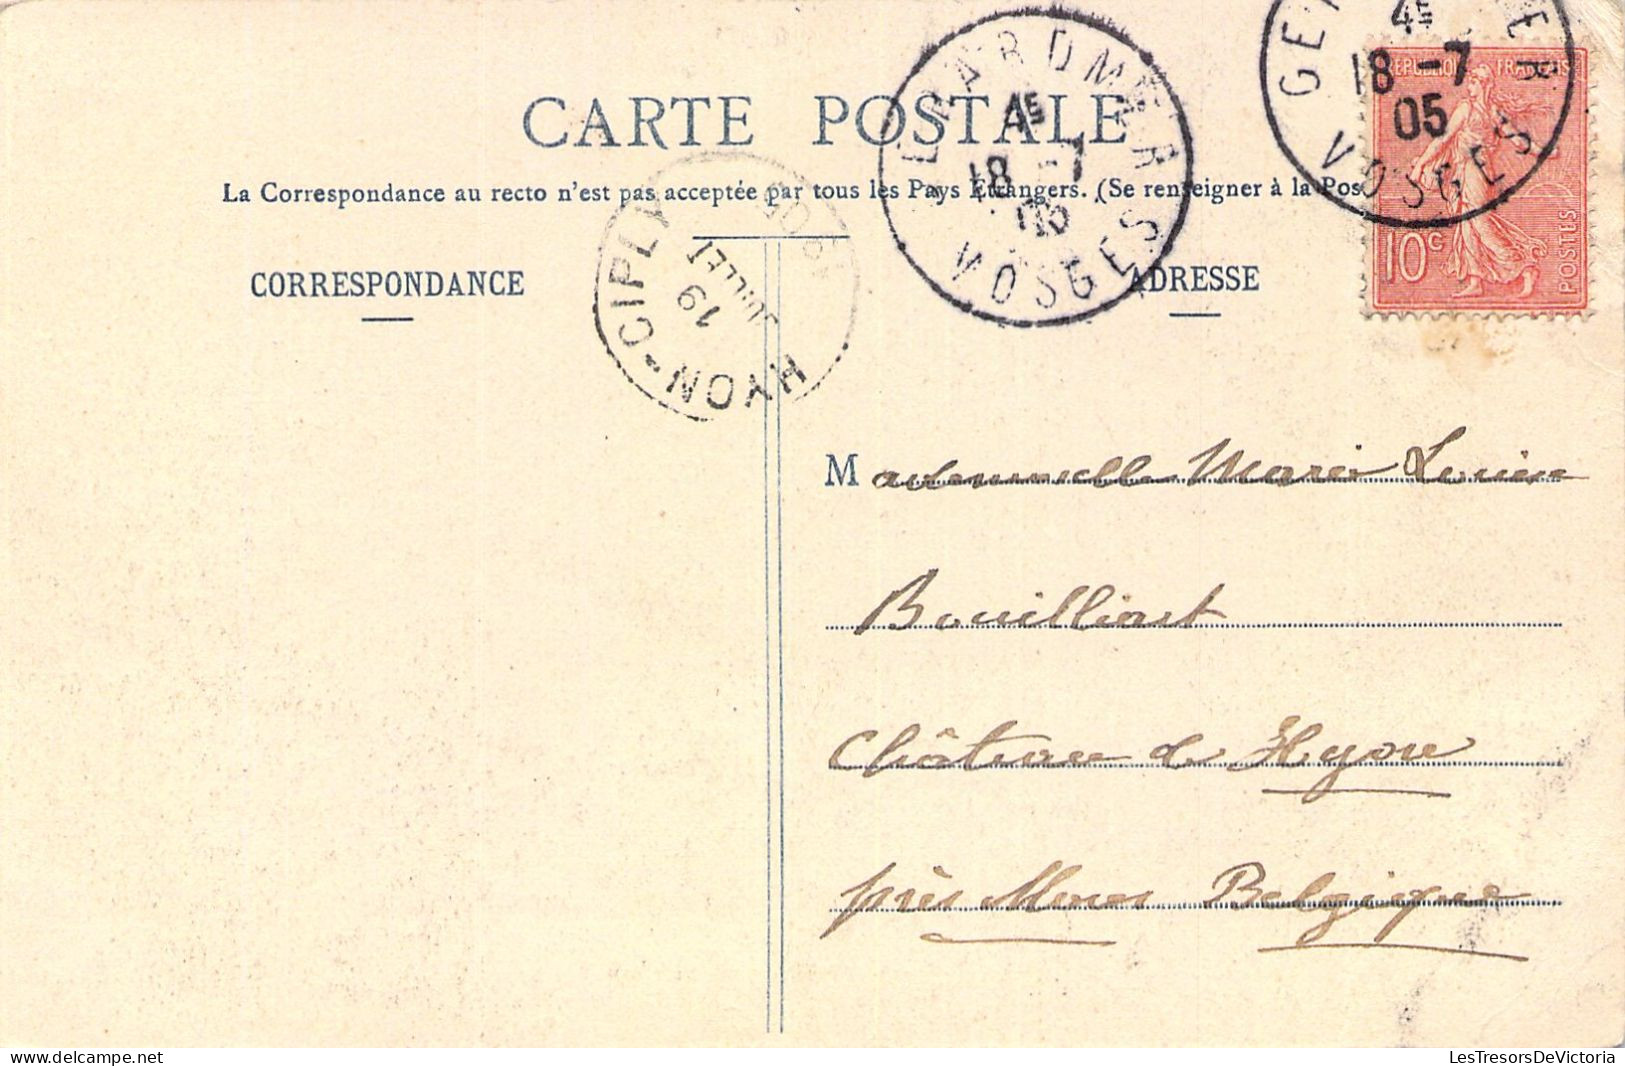 CARTE POSTALE
La Correspondance au recto n'est pas acceptée par tous les Pays Etrangers. (Se renseigner à la Pos
CORRESPONDANCE
ADRESSE
GERARDMER
4E
18 -7
05
VOSGES
GE ER
4E
18 -7
05
VOSGES
REPUBLIQUE FRANÇAISE
10c
POSTES
HYON-CIPLY
19
JUILLET
1905
Mademoiselle Marie Louise
Bouilliart
Château de Hyon
près Mons Belgique
delcampe.net
LesTresorsDeVictoria